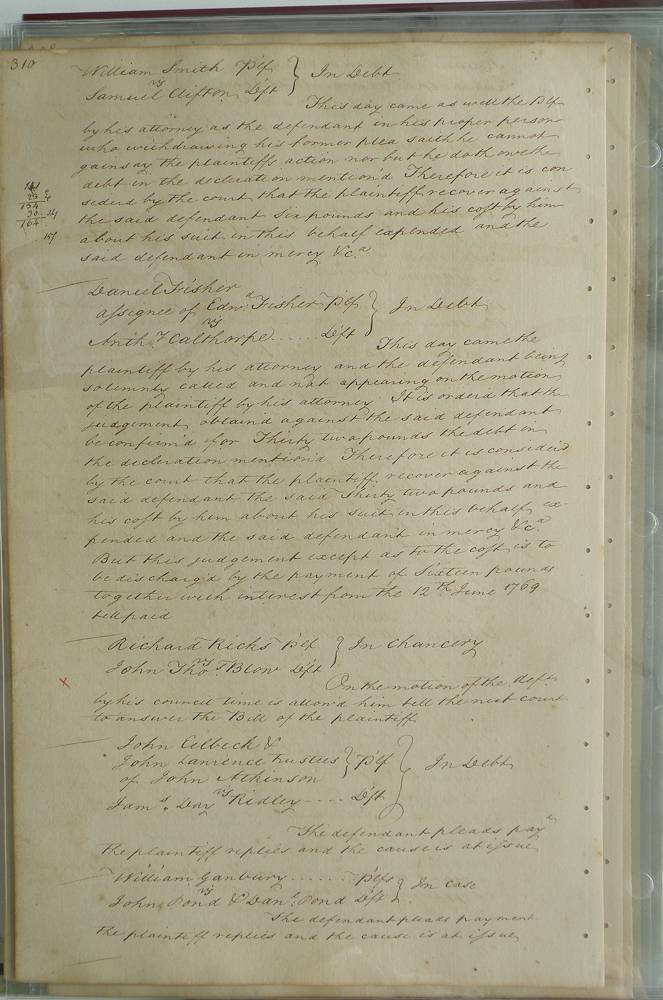 310
William Smith Plf } In Debt
vs
Samuel Clifton Deft
This day came as well the Plf
by his attorney as the defendant in his proper person
who withdrawing his former plea saith he cannot
gainsay the plaintiffs action nor but he doth owe the
debt in the declaration mention'd Therefore it is con
siderd by the court that the plaintiff recover against
the said defendant Six pounds and his cost by him
about his suit in this behalf expended and the
said defendant in mercy &c.a
154
164
157
Daniel Fisher
assignee of Edwd. Fisher Plf } In Debt
vs
Anthy Calthorpe ..... Deft
This day came the
plaintiff by his attorney and the defendant being
solemnly called and not appearing on the motion
of the plaintiff by his attorney It is orderd that the
judgement obtaind against the said defendant
be confirm'd for Thirty two pounds the debt in
the declaration mention'd Therefore it is consider'd
by the court that the plaintiff recover against the
said defendant the said Thirty two pounds and
his cost by him about his suit in this behalf ex
pended and the said defendant in mercy &c.a
But this judgement except as to the cost is to
be discharg'd by the payment of Sixteen pounds
together with interest from the 12th June 1769
till paid
Richard Ricks Plf } In Chancery
vs
John Thos. Blow Deft
On the motion of the defts
by his council time is allow'd him till the next court
to answer the Bill of the plaintiff
John Eelbeck &
John Lawrence trustees } Plf } In Debt
of John Atkinson
vs
Jams. Day Ridley .... Deft
The defendant pleads paymt
the plaintiff replies and the cause is at issue
William Ganbury ...... Plf } In Case
vs
John Pond & Danl. Pond Deft
The defendant pleads payment
the plaintiff replies and the cause is at issue